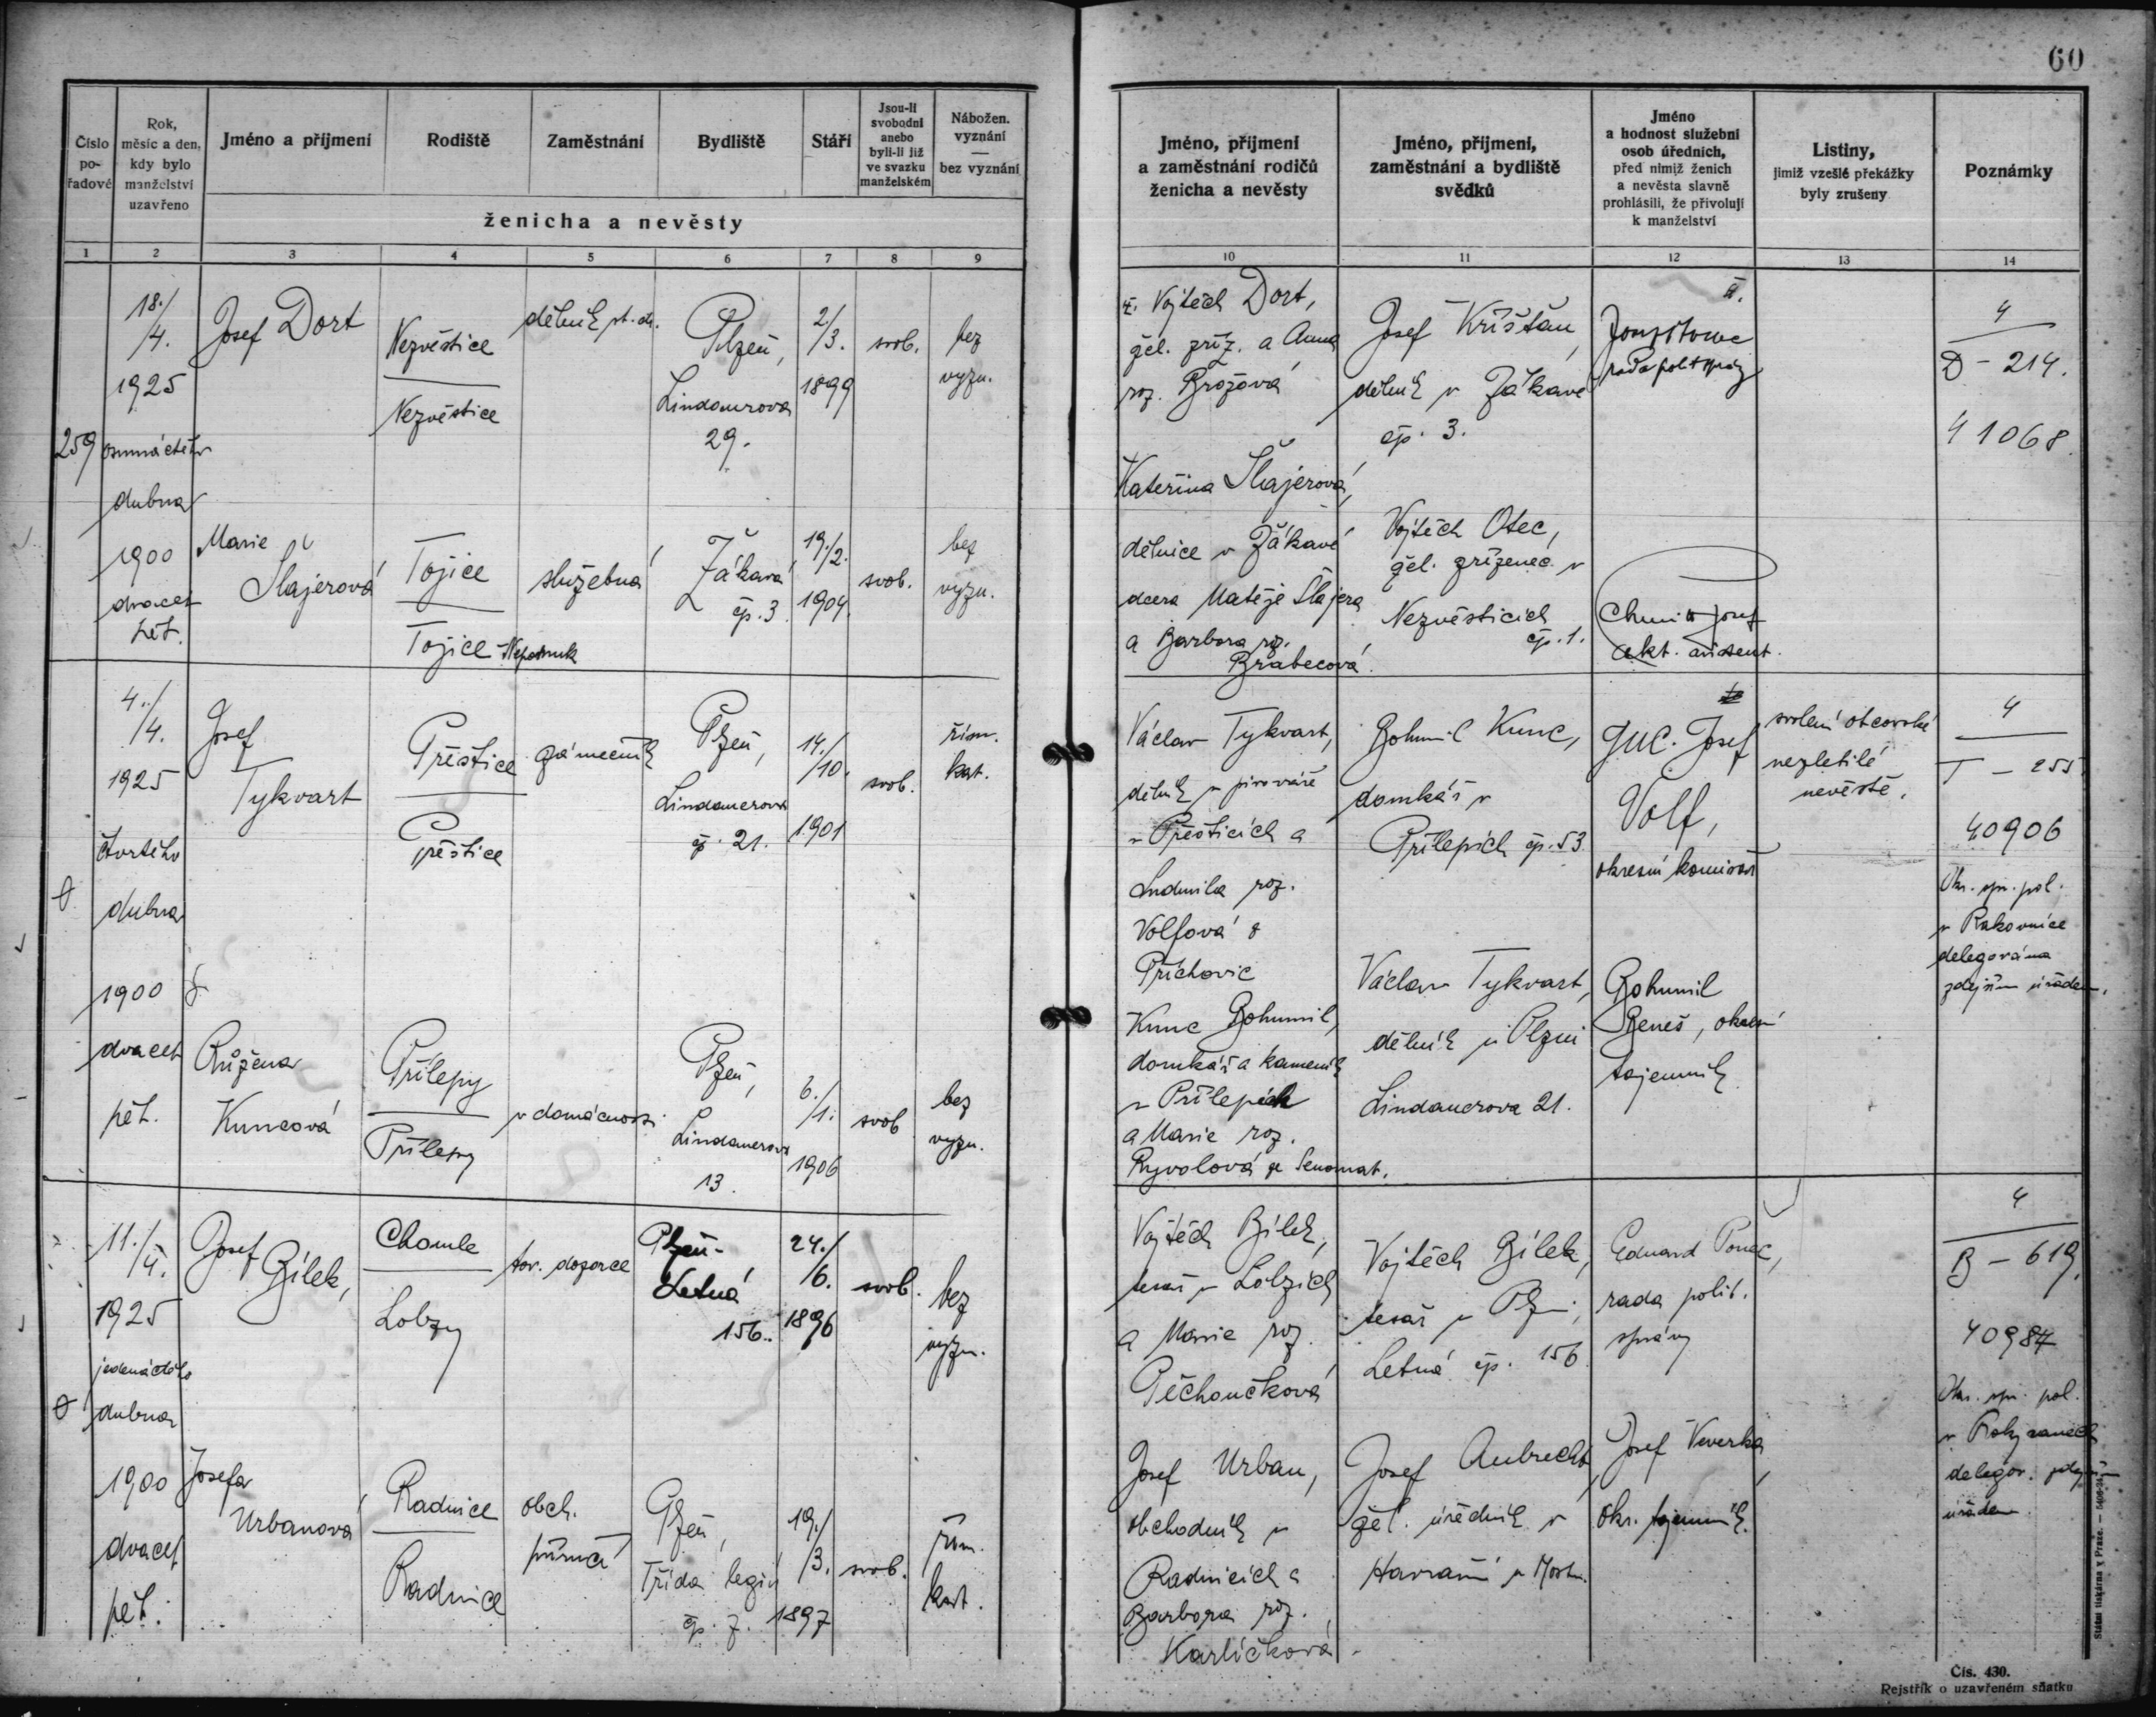 60
Číslo
po-
řadové
Rok,
měsíc a den,
kdy bylo
manželství
uzavřeno
Jméno a příjmení
Rodiště
Zaměstnání
Bydliště
Stáří
Jsou-li
svobodni
anebo
byli-li již
ve svazku
manželském
Nábožen.
vyznání
—
bez vyznání
ženicha a nevěsty
Jméno, příjmení
a zaměstnání rodičů
ženicha a nevěsty
Jméno, příjmení,
zaměstnání a bydliště
svědků
Jméno
a hodnost služební
osob úředních,
před nimiž ženich
a nevěsta slavně
prohlásili, že přivolují
k manželství
Listiny,
jimiž vzešlé překážky
byly zrušeny
Poznámky
1 2 3 4 5 6 7 8 9 10 11 12 13 14
259
18./
/4.
1925
osmnáctého
dubna
1900
dvacet
pět.
Josef Dort
Nezvěstice
Nezvěstice
dělník
Plzeň,
Lindauerova
29.
2/
/3.
1899
svob.
bez
vyzn.
Vojtěch Dort,
žel. zříz. a Anna
roz. Brožová
Josef Krištan,
dělník v Žákavé
čp. 3.
4
D - 214.
41068
Marie
Šlajerová
Tojice
Tojice - Nepomuk
služebná
Žákavá
čp. 3
19./
/2.
1904.
svob.
bez
vyzn.
Kateřina Šlajerová,
dělnice v Žákavé
dcera Matěje Šlajera
a Barbora roz.
Brabecová.
Vojtěch Otec,
žel. zřízenec v
Nezvěsticích
čp. 1.
Josef
akt. asistent.
4./
/4.
1925
čtvrtého
dubna
1900
dvacet
pět.
Josef
Tykvart
Přeštice
Přeštice
zámečník
Plzeň,
Lindauerova
čp. 21.
14./
/10.
1901
svob.
řím.
kat.
Václav Tykvart,
dělník v pivováře
v Přešticích a
Ludmila roz.
Volfová z
Příchovic
Bohumil Kunc,
domkář v
Přílepích čp. 53.
JUC. Josef
Volf,
okresní komisař
svolení otcovské
nezletilé
nevěstě.
4
T - 255
40906
Okr. spr. pol.
v Rakovníce
delegována
zdejším úřadem.
Růžena
Kuncová
Přílepy
Přílepy
v domácnosti
Plzeň,
Lindauerova
13.
6./
/1.
1906
svob
bez
vyzn.
Kunc Bohumil,
domkář a kameník
v Přílepích
a Marie roz.
Ryvolová ze Senomat.
Václav Tykvart,
dělník v Plzni
Lindauerova 21.
Bohumil
Beneš, okresní
tajemník
11./
/4.
1925
jedenáctého
dubna
1900
dvacet
pět.
Josef
Bílek,
Chomle
Lobzy
tov. dozorce
Plzeň-
Letná
156.
24./
/6.
1896
svob.
bez
vyzn.
Vojtěch Bílek,
tesař v Lobzích
a Marie roz.
Pěchoučková
Vojtěch Bílek,
tesař v Plzni,
Letná čp. 156
Eduard Ponec,
rada polit.
správy
4
B - 619.
40987
Okr. spr. pol.
v Rokycanech
delegov. zdejším
úřadem
Josefa
Urbanová
Radnice
Radnice
obch.
příručí
Plzeň,
Třída legií
čp. 7.
19./
/3.
1897
svob.
řím.
kat.
Josef Urban,
obchodník v
Radnicích a
Barbora roz.
Karlíčková
Josef Aubrecht,
žel. úředník v
Havrani u Mostu.
Josef Veverka,
okr. tajemník.
Státní tiskárna v Praze.
Čís. 430.
Rejstřík o uzavřeném sňatku